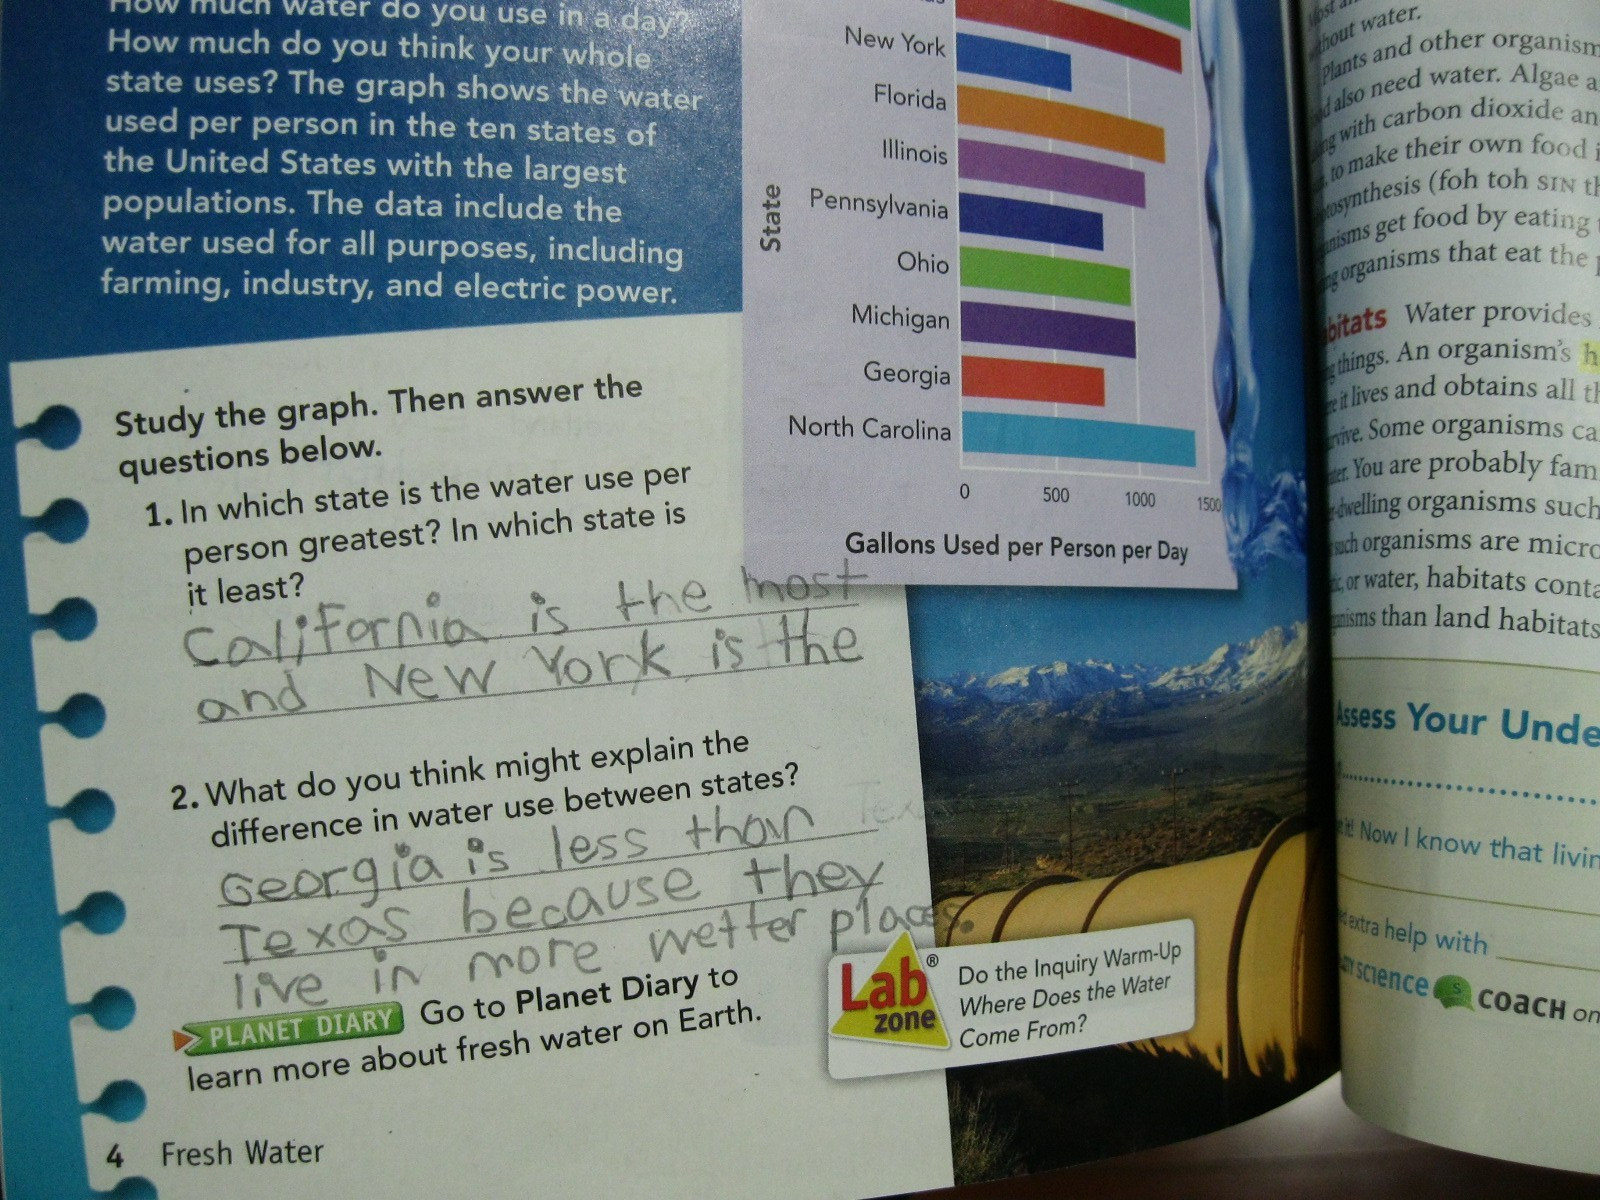 How much water do you use in a day?
How much do you think your whole
state uses? The graph shows the water
used per person in the ten states of
the United States with the largest
populations. The data include the
water used for all purposes, including
farming, industry, and electric power.
Study the graph. Then answer the
questions below.
1. In which state is the water use per
person greatest? In which state is
it least?
California is the most
and New York is the
2. What do you think might explain the
difference in water use between states?
Georgia is less than
Texas because they
live in more wetter places.
PLANET DIARY Go to Planet Diary to
learn more about fresh water on Earth.
4 Fresh Water
State
New York
Florida
Illinois
Pennsylvania
Ohio
Michigan
Georgia
North Carolina
0 500 1000 1500
Gallons Used per Person per Day
Lab®
zone
Do the Inquiry Warm-Up
Where Does the Water
Come From?
without water.
Plants and other
also need water. Algae
with carbon dioxide
to make their own food
(foh toh SIN
get food by eating
organisms that eat the
Water provides
things. An organism's
it lives and obtains all
Some organisms
You are probably
organisms such
such organisms are
or water, habitats
than land habitats
Assess Your
Now I know that
extra help with
SCIENCE S COACH on